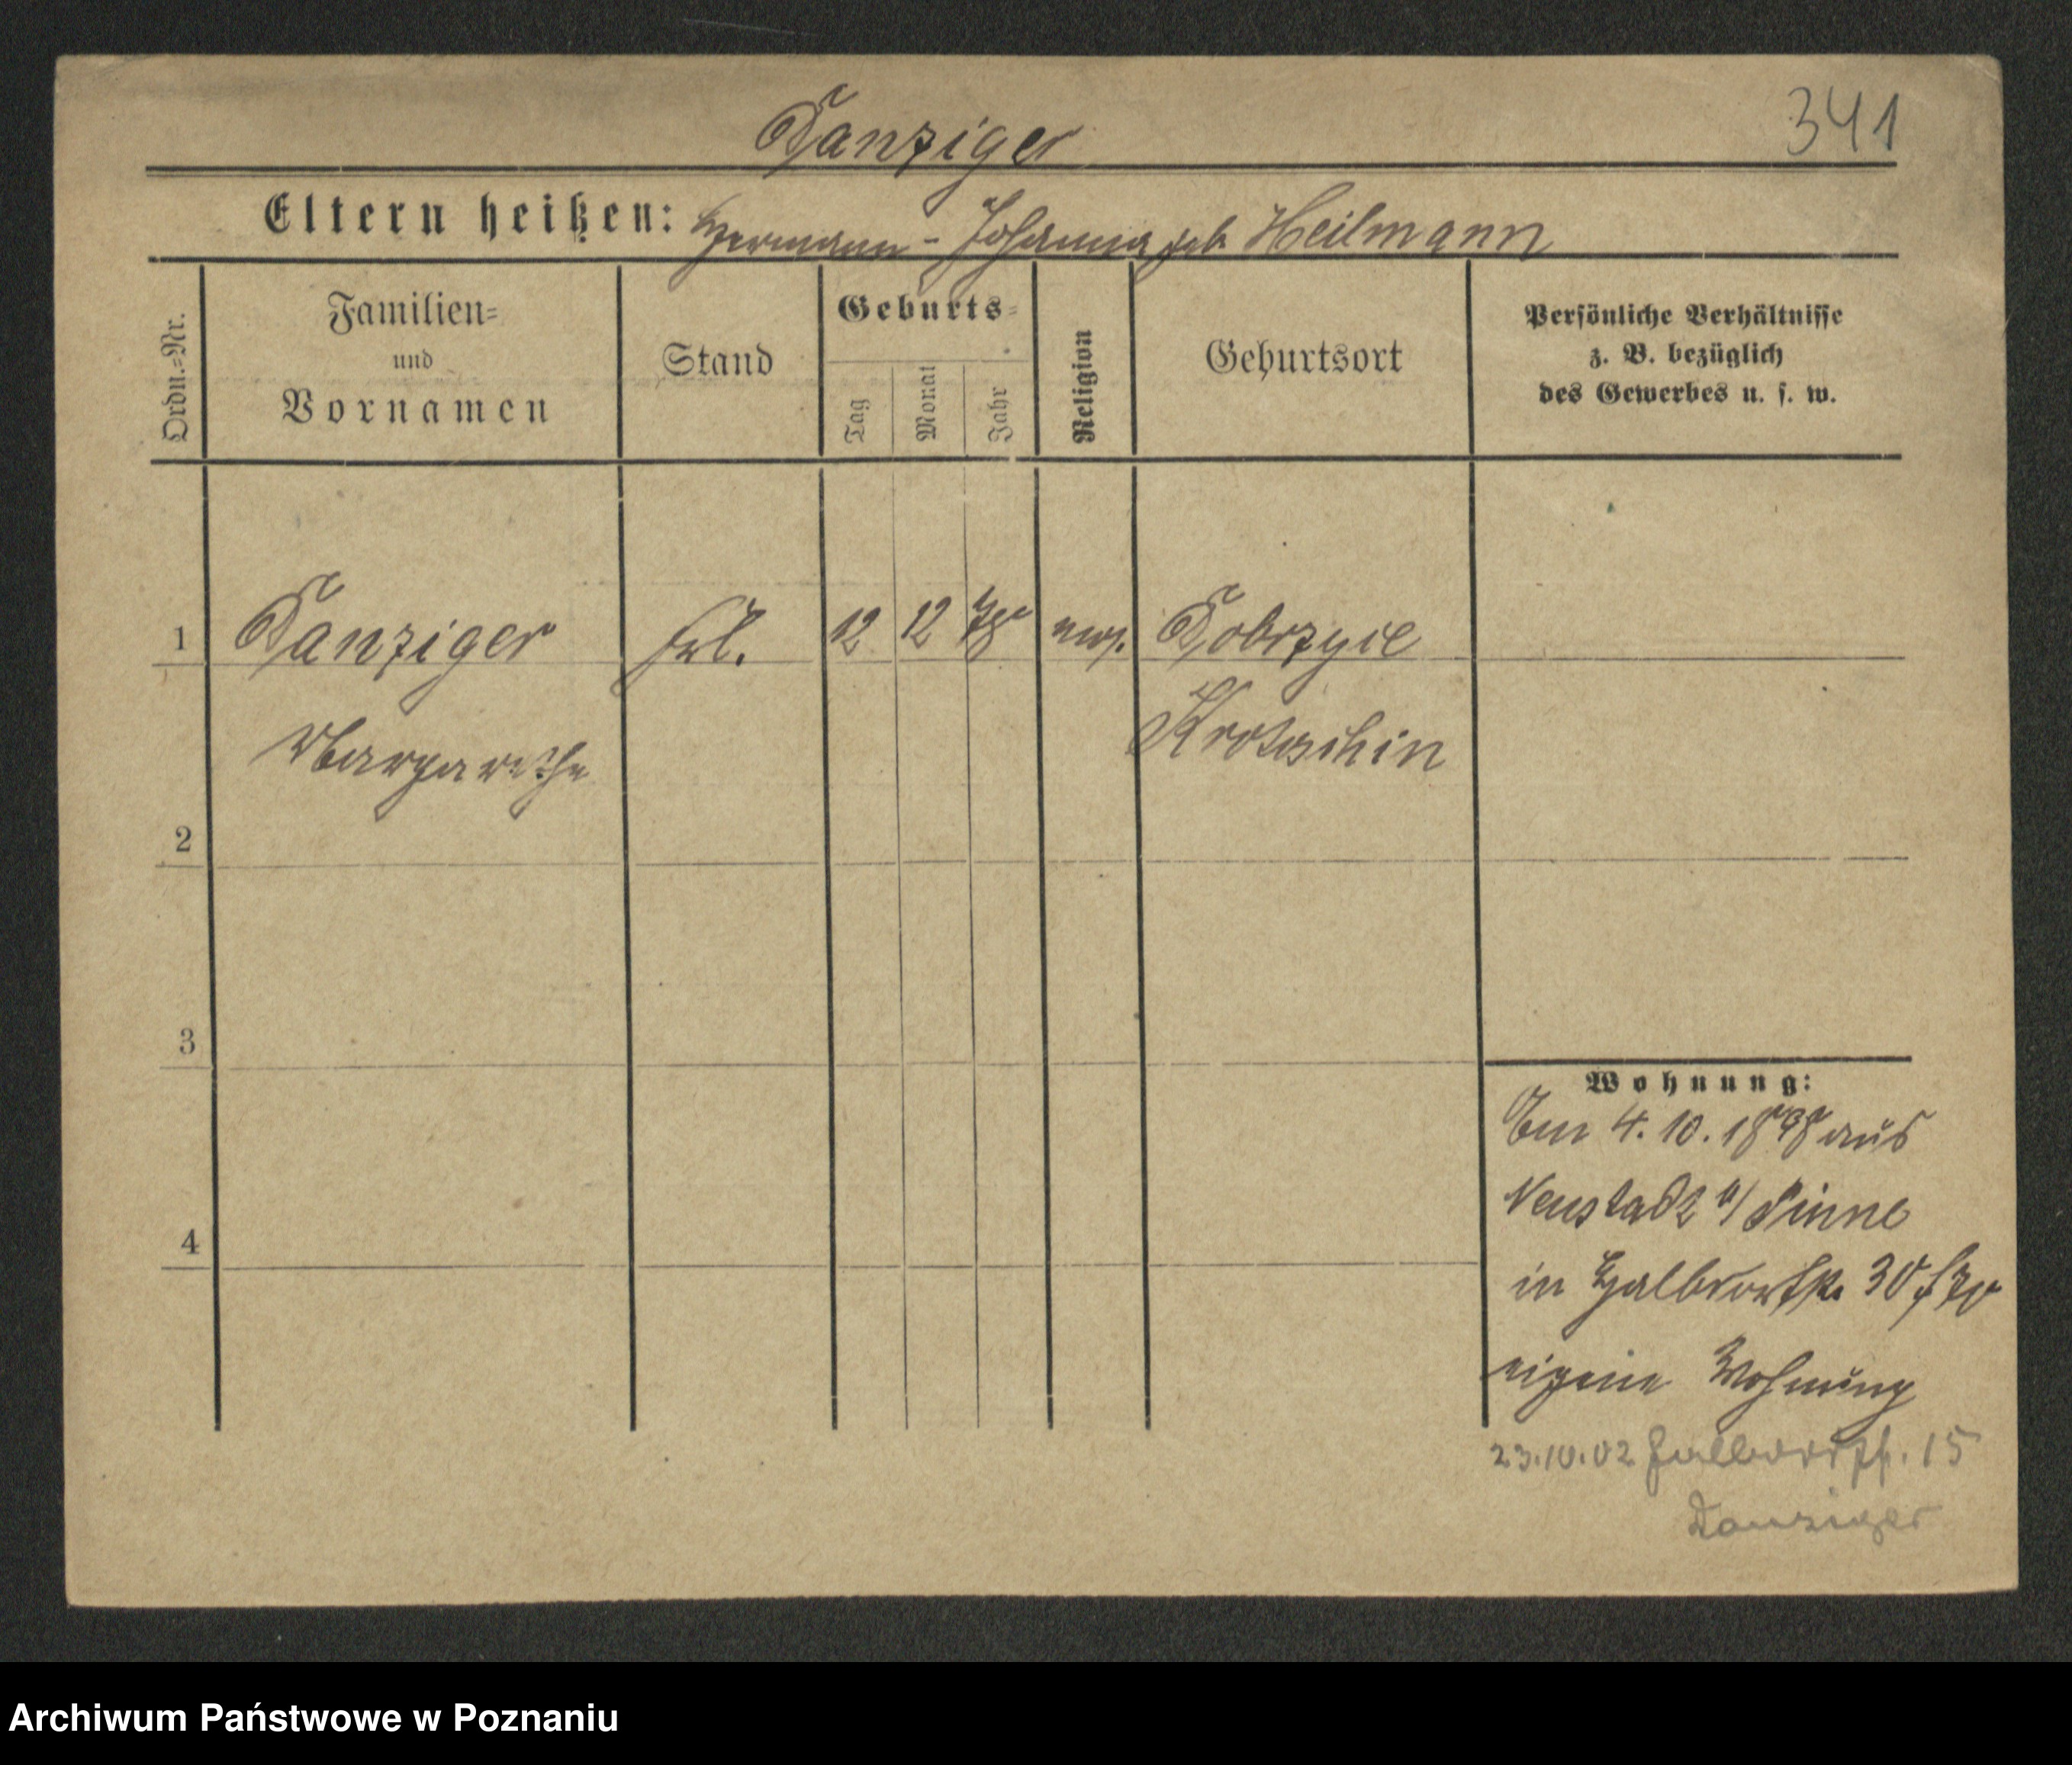 341
Danziger
Eltern heißen: Hermann - Johanna geb Heilmann
Ordn.=Nr.
Familien=
und
Vornamen
Stand
Geburts=
Tag
Monat
Jahr
Religion
Geburtsort
Persönliche Verhältnisse
z. B. bezüglich
des Gewerbes u. s. w.
1 Danziger Frl. 12 12 78 mos. Dobrzyce
Margarethe Krotoschin
2
3
4
Wohnung:
Am 4. 10. 1898 aus
Neustadt a/ Pinne
in Halbdorfstr. 30
eigene Wohnung
23.10.02 Halbdorfstr. 15
Danziger
Archiwum Państwowe w Poznaniu